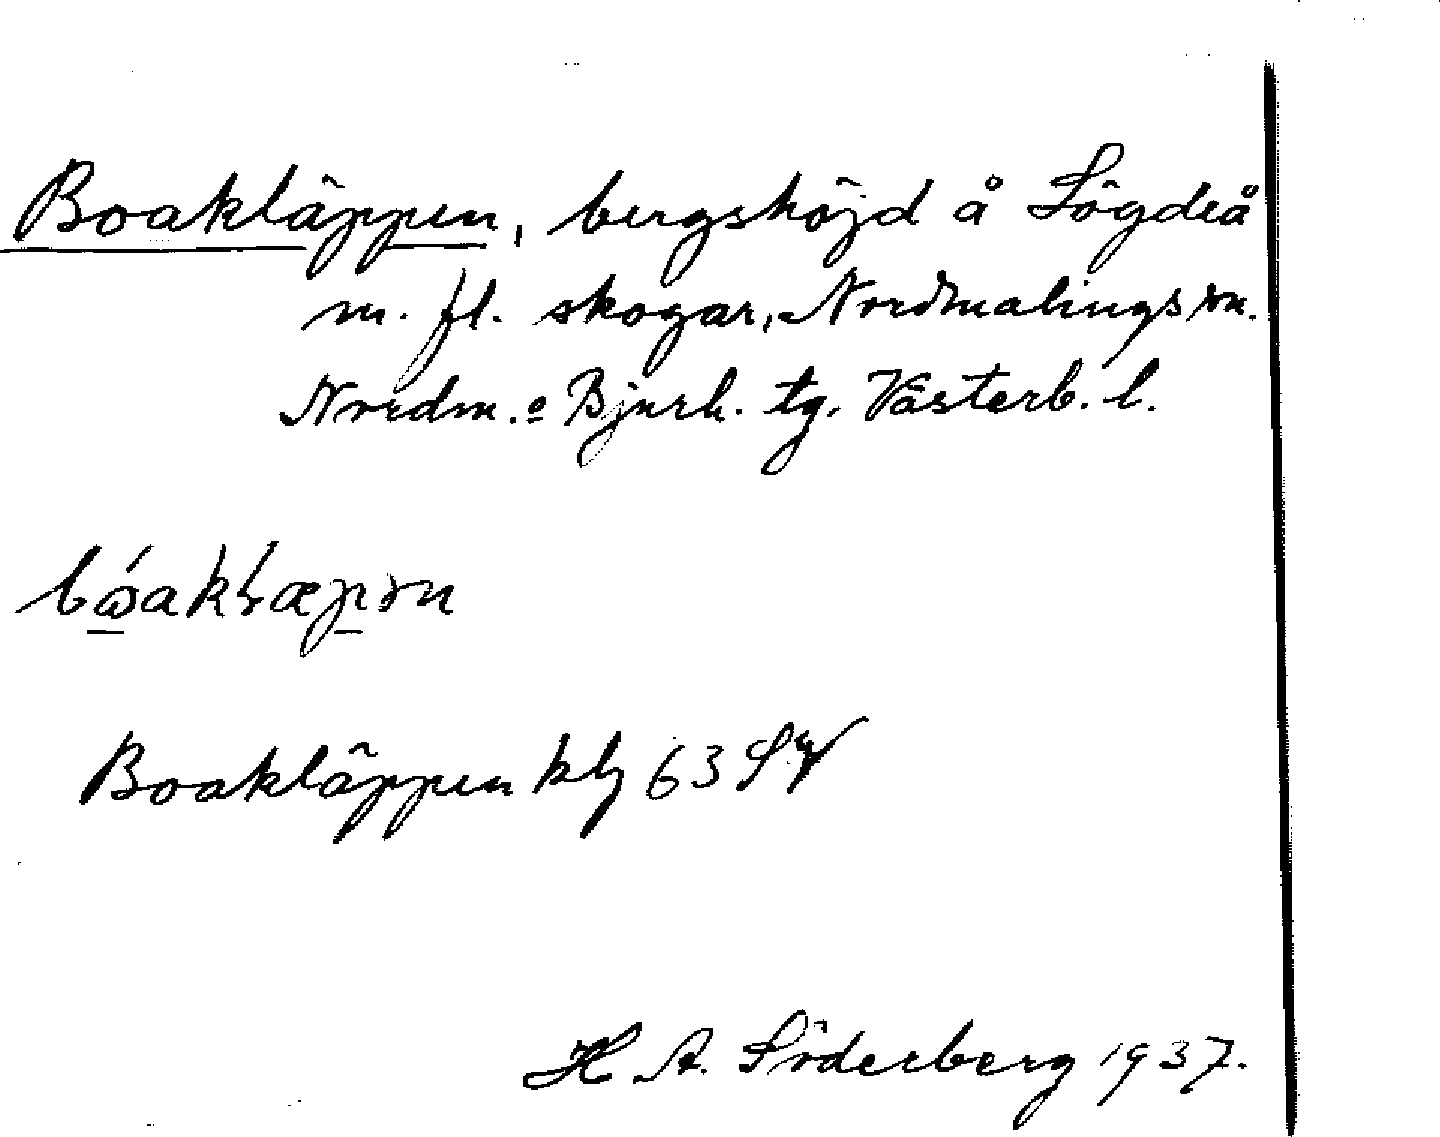 Boakläppen, bergshöjd å Lögdeå
m. fl. skogar, Nordmalings sn.
Nordm. o Bjurh. tg. Västerb. l.
Boakläppen 63 SV
H A. Söderberg 1937.